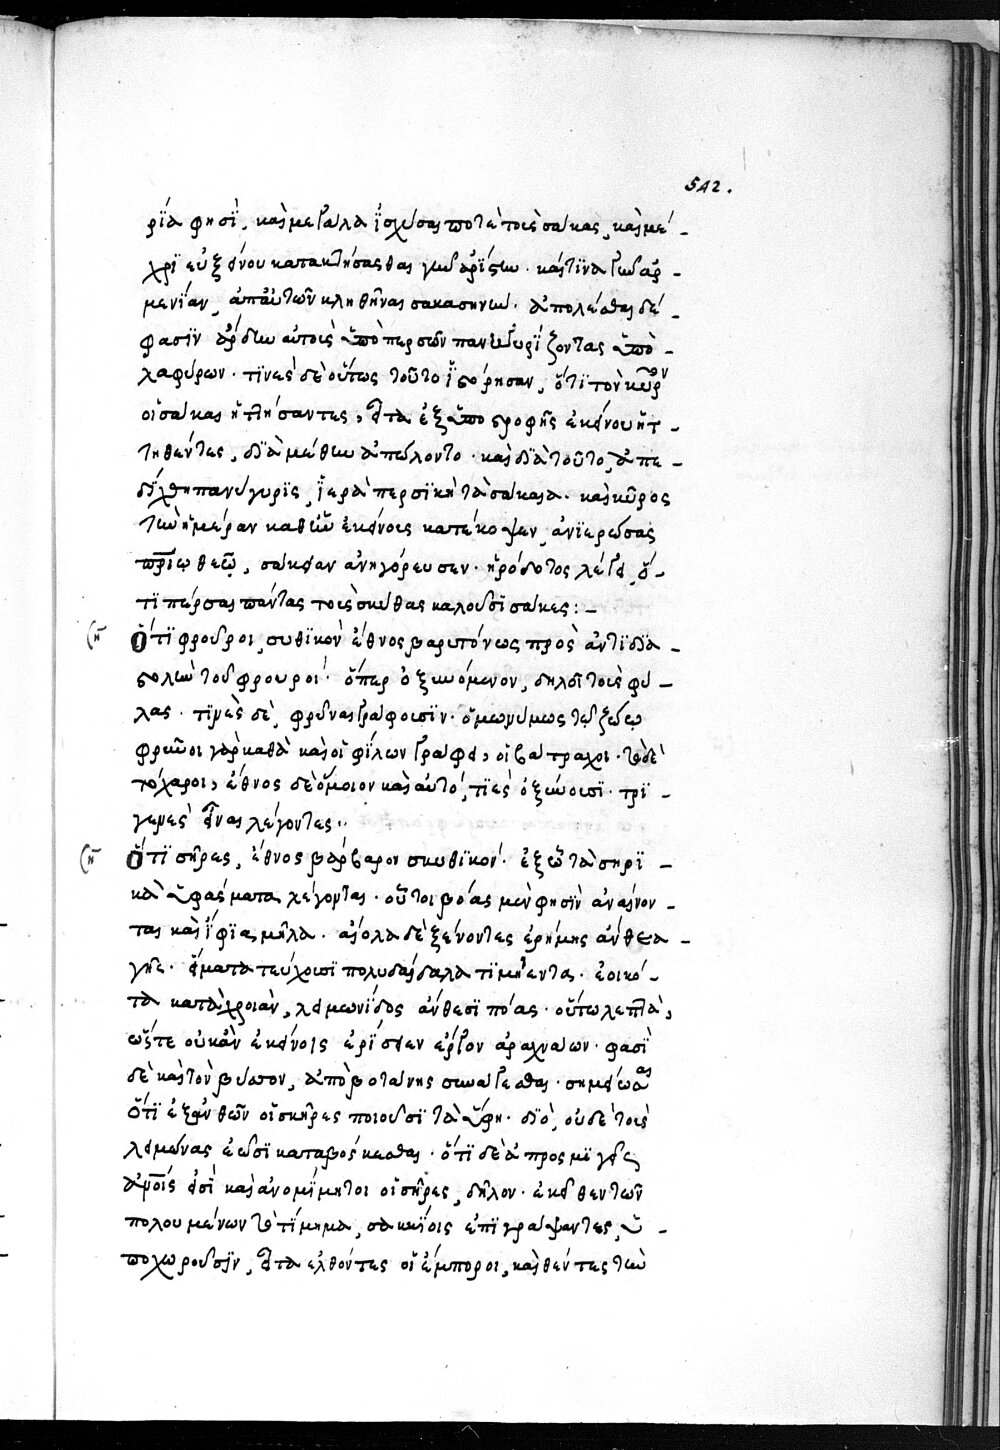 542.
ρία φησὶ, καὶ μεγάλα ἰσχῦσαι ποτὲ τοὺς σάκας, καὶ μέ-
χρι εὐξείνου κατακτήσασθαι γῆν ἀρίστην· καί τινα γῆν ἀρ-
μενίαν, ἀπ' αὐτῶν κληθῆναι σακασηνήν. ἀπολέσθαι δέ
φασιν ἄρδην αὐτοὺς ὑπὸ περσῶν πανηγυρίζοντας ὑπὸ
λαφύρων· τινὲς δὲ οὕτως τοῦτο ἱστόρησαν, ὅτι τὸν κῦρον
οἱ σάκαι ἡττήσαντες, εἶτα ἐξ ὑποστροφῆς ἐκείνου ἡτ-
τηθέντες, διὰ μέθην ἀπώλοντο· καὶ διὰ τοῦτο, ἀπε-
δείχθη πανήγυρις, ἱερὰ περσικὴ τὰ σάκαια. καὶ κῦρος
τὴν ἡμέραν καθ' ἣν ἐκείνους κατέκοψεν, ἀνιερώσας
πατρίῳ θεῷ, σάκειαν ἀνηγόρευσεν· ἡρόδοτος λέγει, ὅ-
τι πέρσαι πάντας τοὺς σκύθας καλοῦσι σάκες:-
Ὅτι φροῦροι, σκυθικὸν ἔθνος βαρυτόνως πρὸς ἀντιδια-
στολὴν τοῦ φρουροί· ὅπερ ὀξυνόμενον, δηλοῖ τοὺς φύ-
λακας· τινὲς δὲ, φρύνας γράφουσιν· ὁμωνύμως τῷ ζώῳ
φρῦνοι γὰρ καθὰ καὶ οἱ φίλων γράφει, οἱ βάτραχοι· τὸ δὲ
τόχαροι, ἔθνος δὲ ὅμοιον καὶ αὐτό, τινὲς ὀξύνουσι· τρι-
γενὲς εἶναι λέγοντες..
Ὅτι σῆρες, ἔθνος βάρβαρον σκυθικόν· ἐξ οὗ τὰ σηρι-
κὰ ὑφάσματα λέγονται· οὗτοι βόας μὲν φησὶν ἀναίνον-
ται καὶ ἴφια μῆλα. αἰόλα δὲ ξαίνοντες ἐρήμης ἄνθεα
γῆς. εἵματα τεύχουσι πολυδαίδαλα τιμήεντα. ἐοικό-
τα κατὰ χροιὰν, λειμωνίδος ἄνθεσι ποίας. οὕτω λεπτὰ,
ὥστε οὐκ ἂν ἐκείνοις ἐρίσειεν ἔργον ἀραχνάων. φασὶ
δὲ καὶ τὸν βύσσον, ἀπὸ βοτάνης συνάγεσθαι. σημείωσαι
ὅτι ἐξ ἀνθῶν οἱ σῆρες ποιοῦσι τὰ ὕφη. διὸ, οὐδὲ τοὺς
λειμῶνας ἐῶσι καταβόσκεσθαι. ὅτι δὲ ἀπροσμιγεῖς
ἀνθρώποις εἰσὶ καὶ ἀνομίλητοι οἱ σῆρες, δῆλον· ἐκ τῶν
πολουμένων τὸ τίμημα, σακκίοις ἐπιγράψαντες, ὑ-
ποχωροῦσιν, εἶτα ἐλθόντες οἱ ἔμποροι, καὶ θέντες τὴν